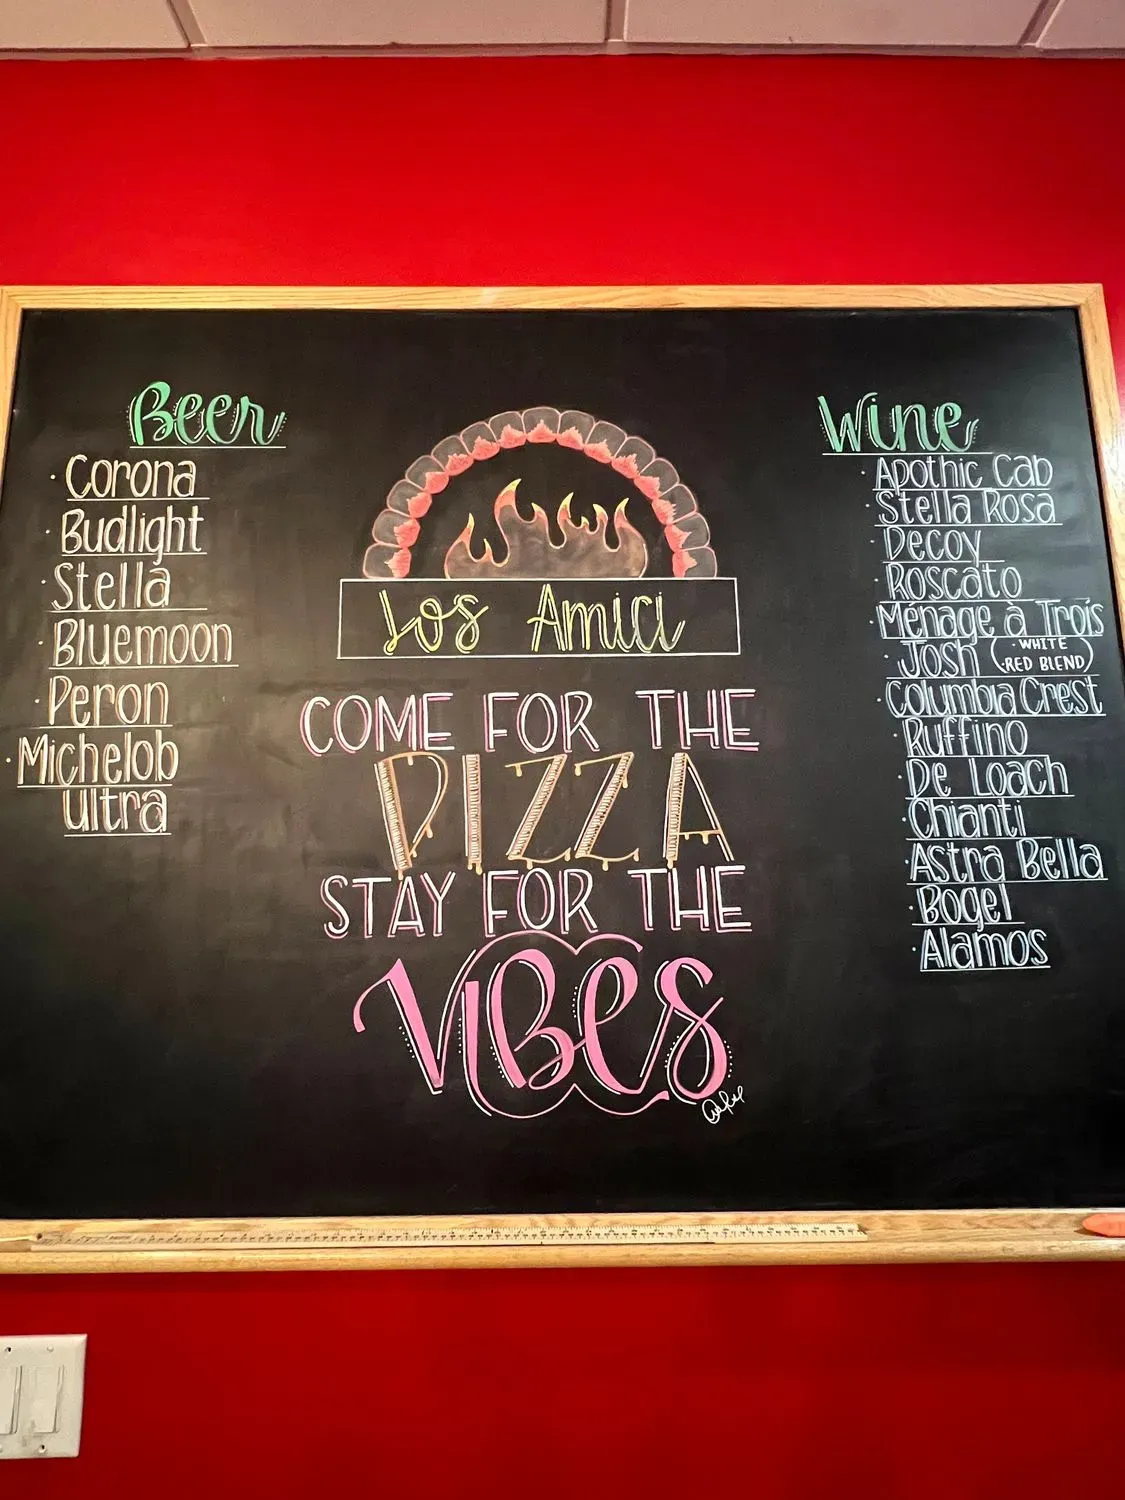 Beer
· Corona
· Budlight
· Stella
· Bluemoon
· Peron
· Michelob
Ultra
Los Amici
COME FOR THE
PIZZA
STAY FOR THE
VIBES
Wine
· Apothic Cab
· Stella Rosa
· Decoy
· Roscato
· Ménage à Trois
· Josh (· WHITE
· RED BLEND)
· Columbia Crest
· Ruffino
· De Loach
· Chianti
· Astra Bella
· Bogel
· Alamos